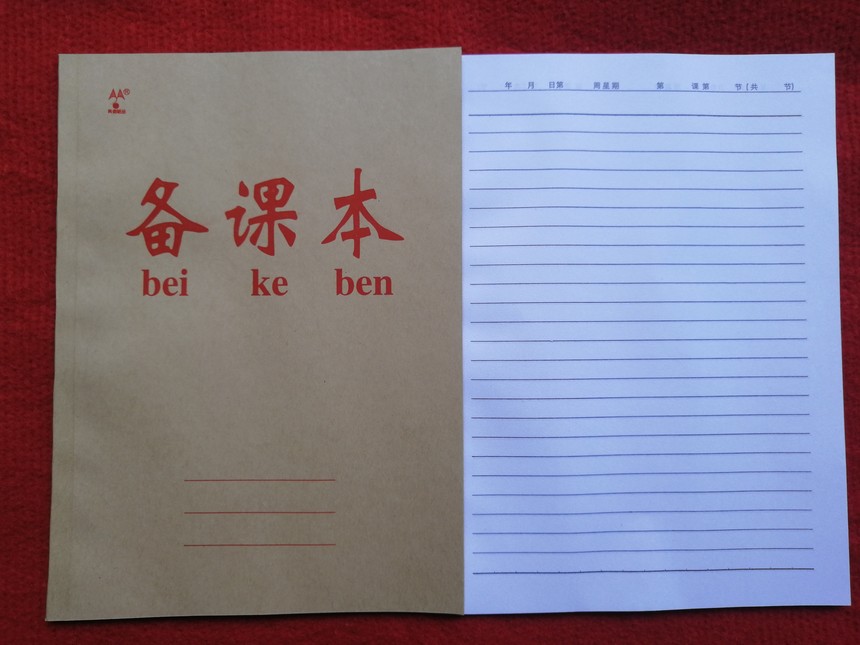 AA®
备课本
bei ke ben
年 月 日第 周星期 第 课第 节(共 节)